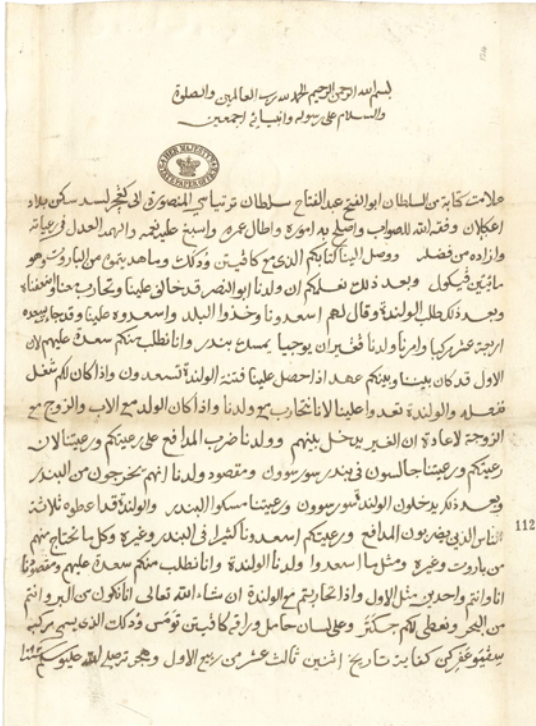 بسم الله الرحمن الرحيم الحمد لله رب العالمين والصلوة
والسلام على رسوله وانبيائه اجمعين
HER MAJESTY'S STATE PAPER OFFICE
علامت كتابة من السلطان ابو الفتح عبد الفتاح سلطان المنصورة الى سكن بلاد
وفقه الله للصواب واصلح به اموره واطال عمره واسبغ عليه نعمه والهمه العدل في رعياته
وازاده من فضله ووصل الينا كتابكم الذي مع كافيتن ودكلت من الباروت وهو
مائتين فيكول وبعد ذلك نعلمكم ان ولدنا ابو النصر قد خالف علينا وتحارب معنا
وبعد ذلك طلب الولندة وقال لهم اسعدونا وخذوا البلد واسعدوه علينا وقد جاء
اربعة عشر مركبا وامرنا ولدنا بندر وانا نطلب منكم سعدة عليهم لان
الاول قد كان بيننا وبينكم عهد اذا حصل علينا فتنة الولندة تسعدون واذا كان لكم شغل
نفعله والولندة تعدوا علينا لانا نتحارب مع ولدنا واذا كان الولد مع الاب والزوج مع
الزوجة لا عادة ان الغير يدخل بينهم وولدنا ضرب المدافع على رعيتكم ورعيتنا لان
رعيتكم ورعيتنا جالسون في بندر ومقصود ولدنا انهم يخرجون من البندر
وبعد ذلك يدخلون الولندة ورعيتنا مسكوا البندر والولندة قد اعطوه ثلاثة
الناس الذي يضربون المدافع ورعيتكم اسعدونا كثيرا في البندر وغيره وكل ما نحتاج منهم
112
من باروت وغيره ومثل ما اسعدوا ولدنا الولندة وانا نطلب منكم سعدة عليهم ومقصودنا
انا وانتم واحدين مثل الاول واذا تحاربتم مع الولندة ان شاء الله تعالى انا نكون من البر وانتم
من البحر ونعطي لكم وعلى لسان حامل كافيتن تومس ودكلت الذي يسمى مركبه
كفاية تاريخ اثنين ثالث عشر من ربيع الاول